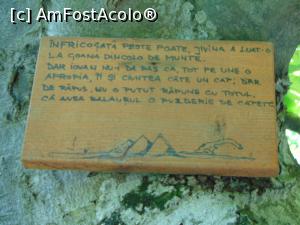 [c] AmFostAcolo®
ÎNFRICOȘATĂ PESTE POATE, JIVINA A LUAT-O
LA GOANA DINCOLO DE MUNTE.
DAR IOVAN NU-I DA PAS CA, TOT PE UNDE O
APROPIA, ÎI CIUNTEA CÂTE UN CAP; DAR
DE RĂPUS, NU O PUTUT RĂPUNE CU TOTUL,
CĂ AVEA BALAURUL O PUZDERIE DE CAPETE